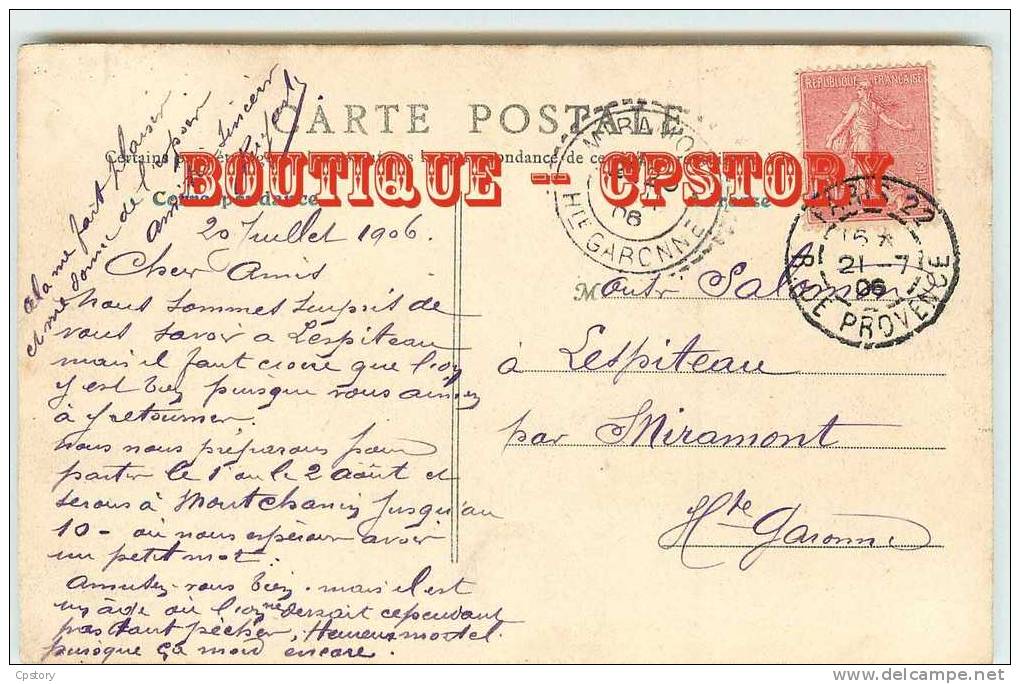 CARTE POSTALE
BOUTIQUE -- CPSTORY
Correspondance
20 Juillet 1906.
Cher Amis
nous sommes surpris de
vous savoir à Lespiteau
mais il faut croire que l'on
y est bien puisque vous aimez
à y retourner.
nous nous préparons pour
partir le 1er ou le 2 août et
serons à Montchanin jusqu'au
10 - où nous espérons avoir
un petit mot.
Amusez-vous bien. mais il est
un âge où l'on ne devrait cependant
pas tant pécher, Heureux mortel
puisque ça mord encore.
à la me fait plaisir
et me donne de l'espoir
Amitiés Sincères
Monsr Salomon
à Lespiteau
par Miramont
Hte Garonne
REPUBLIQUE FRANÇAISE
MIRAMONT
06
HTE GARONNE
PARIS 22
21-7
06
R. DE PROVENCE
Cpstory
www.delcampe.net